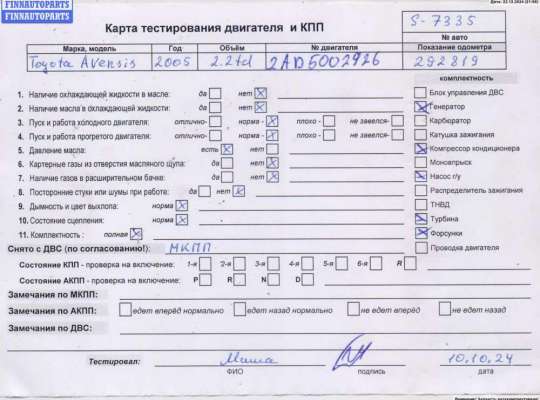 FINNAUTOPARTS
FINNAUTOPARTS
Дата: 22.10.2024
Карта тестирования двигателя и КПП
S-7335
№ авто
Марка, модель Год Объём № двигателя Показание одометра
Toyota Avensis 2005 2.2td 2AD5002926 292819
комплектность
1. Наличие охлаждающей жидкости в масле: да нет
2. Наличие масла в охлаждающей жидкости: да нет
3. Пуск и работа холодного двигателя: отлично- норма - плохо - не завелся-
4. Пуск и работа прогретого двигателя: отлично- норма - плохо - не завелся-
5. Давление масла: есть нет
6. Картерные газы из отверстия масляного щупа: да нет
7. Наличие газов в расширительном бачке: да нет
8. Посторонние стуки или шумы при работе: да нет
9. Дымность и цвет выхлопа: норма
10. Состояние сцепления: норма
11. Комплектность : полная
Блок управления ДВС
Генератор
Карбюратор
Катушка зажигания
Компрессор кондиционера
Моновпрыск
Насос г/у
Распределитель зажигания
ТНВД
Турбина
Форсунки
Проводка двигателя
Снято с ДВС (по согласованию!): МКПП
Состояние КПП - проверка на включение: 1-я 2-я 3-я 4-я 5-я 6-я R
Состояние АКПП - проверка на включение: P R N D
Замечания по МКПП:
Замечания по АКПП: едет вперёд нормально едет назад нормально не едет вперёд не едет назад
Замечания по ДВС:
Тестировал: Миша 10.10.24
ФИО подпись дата